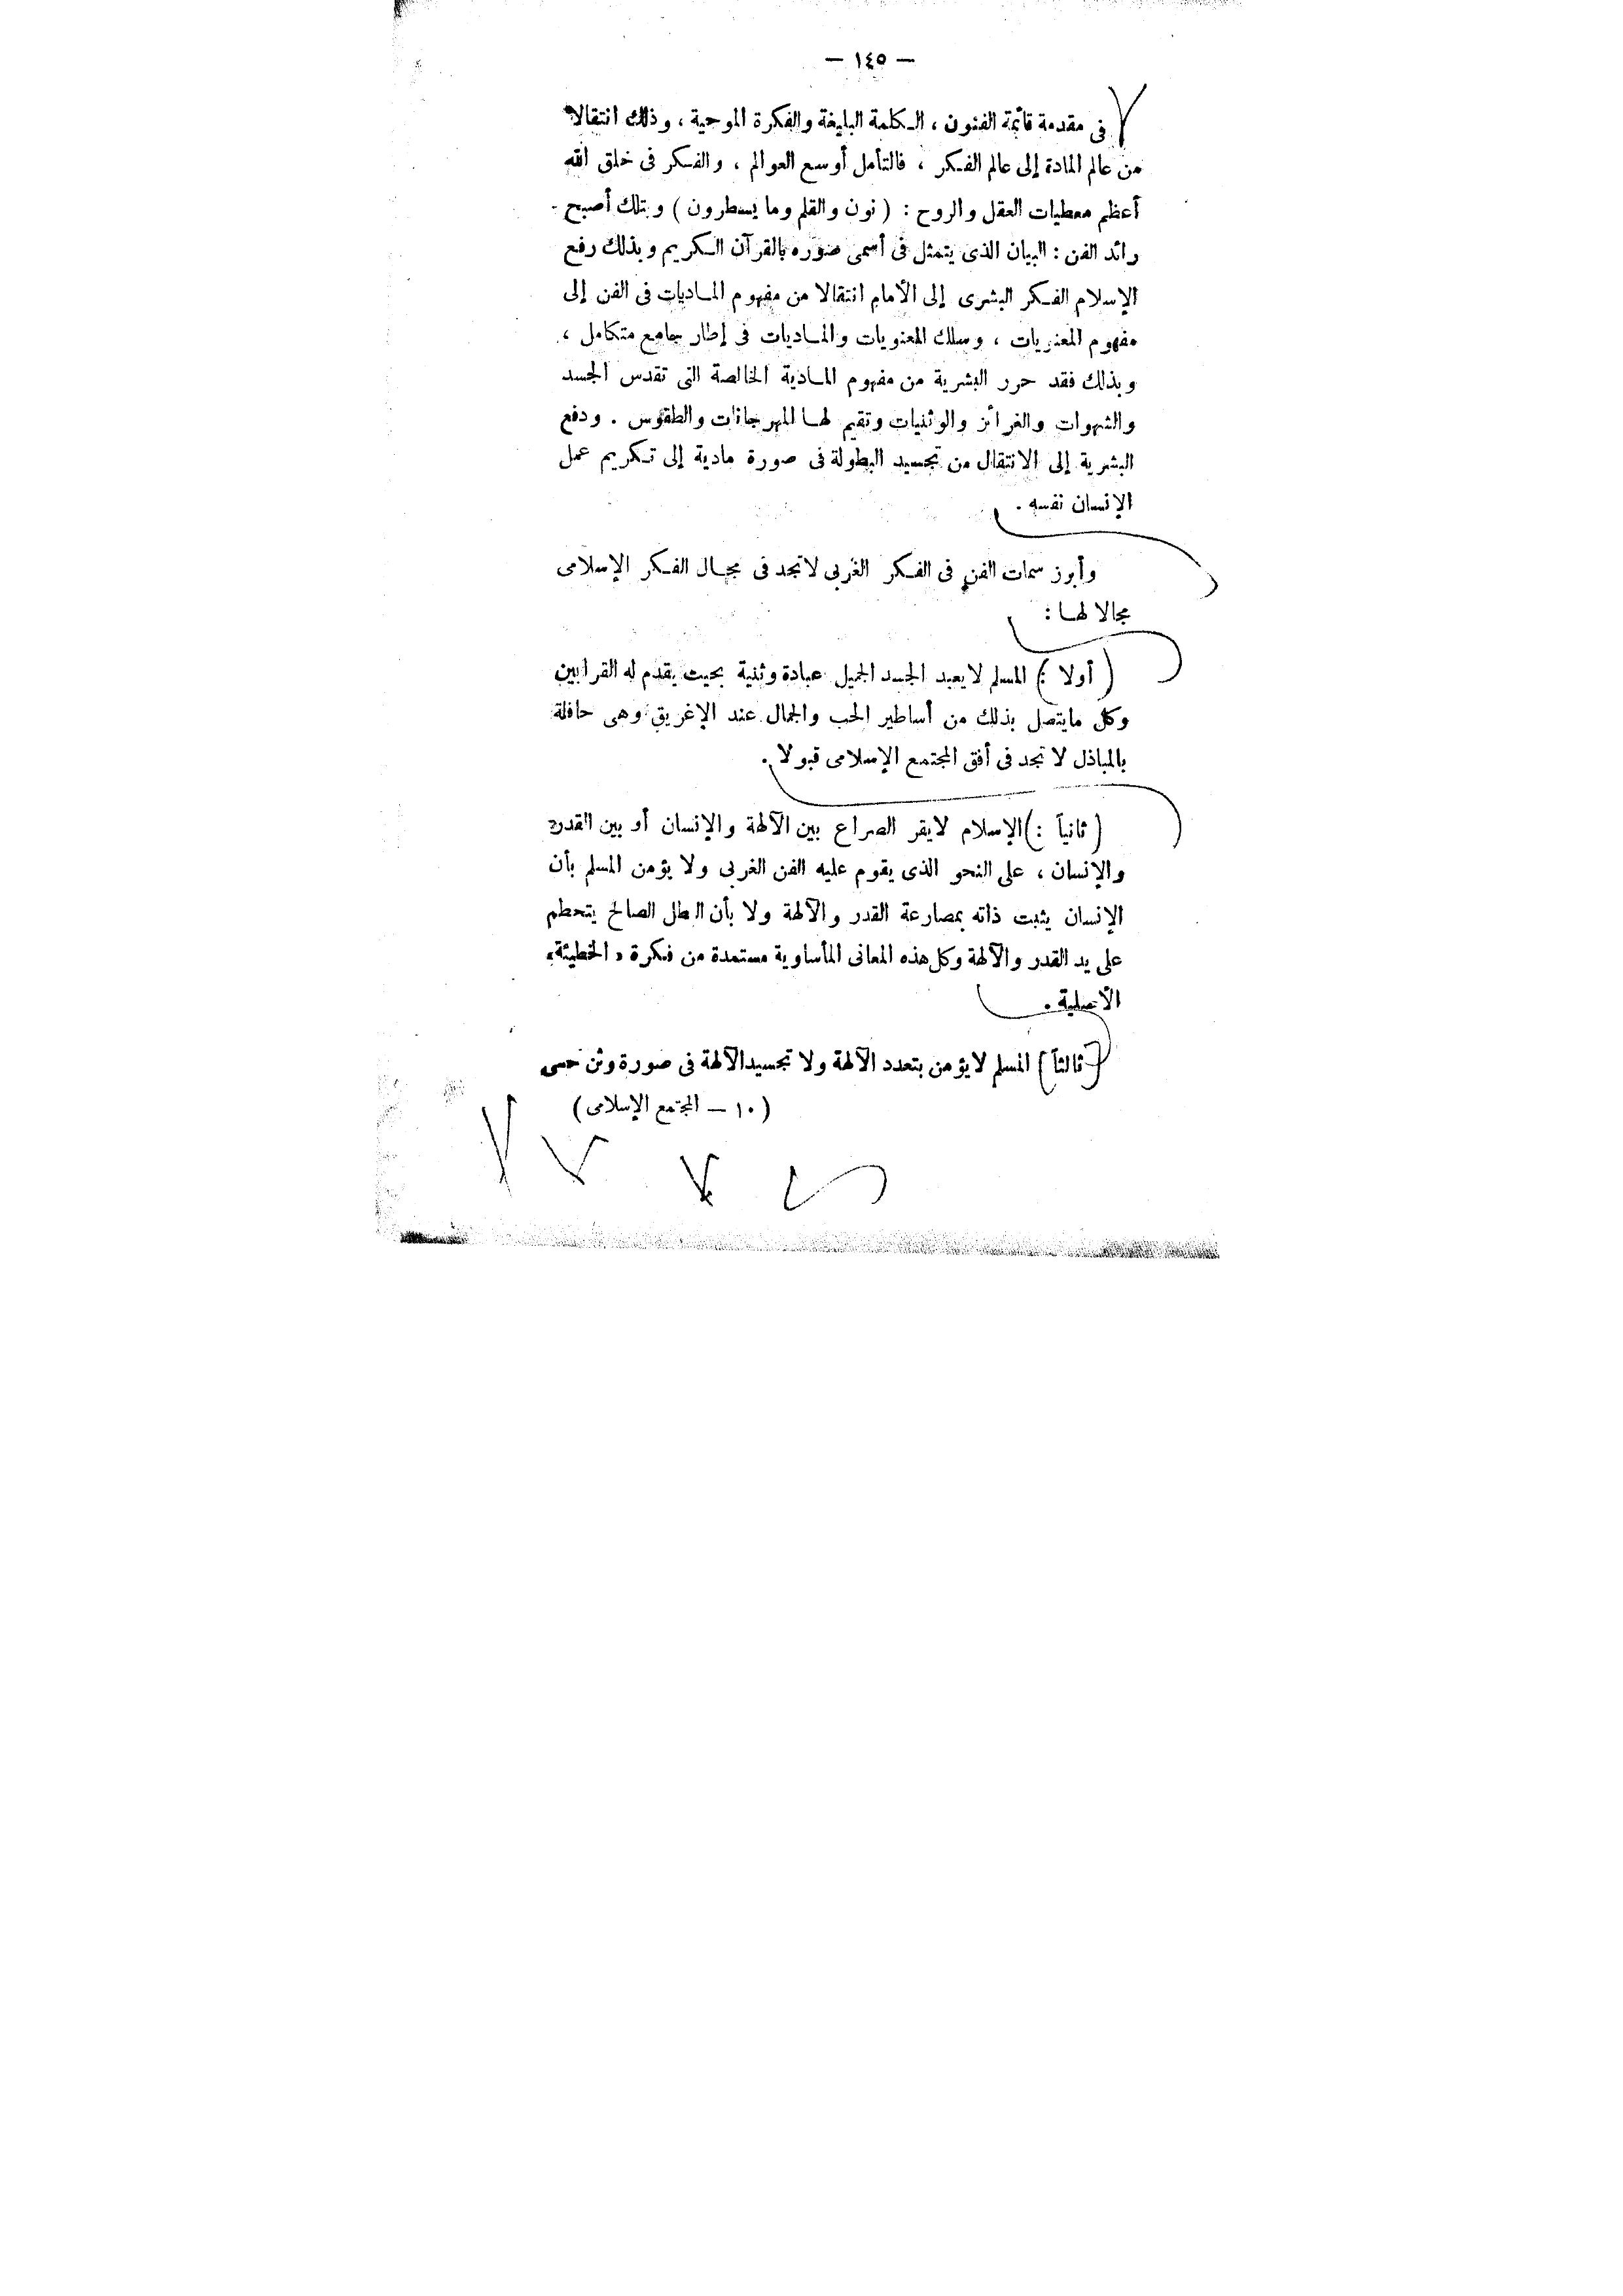 — ١٤٥ —
في مقدمة قائمة الفنون ، الكلمة البليغة والفكرة الموحية ، وذلك انتقالا
من عالم المادة إلى عالم الفكر ، فالتأمل أوسع العوالم ، والفكر فى خلق الله
أعظم معطيات العقل والروح : ( نون والقلم وما يسطرون ) وبتلك أصبح
رائد الفن : البيان الذى يتمثل فى أسمى صوره بالقرآن الكريم وبذلك رفع
الإسلام الفكر البشرى إلى الأمام انتقالا من مفهوم الماديات فى الفن إلى
مفهوم المعنويات ، وسلك المعنويات والماديات فى إطار جامع متكامل ،
وبذلك فقد حرر البشرية من مفهوم المادية الخالصة التى تقدس الجسد
والشهوات والغرائز والوثنيات وتقيم لها المهرجانات والطقوس . ودفع
البشرية إلى الانتقال من تجسيد البطولة فى صورة مادية إلى تكريم عمل
الإنسان نفسه .
وأبرز سمات الفن فى الفكر الغربى لا تجد فى مجال الفكر الإسلامى
مجالا لها :
( أولا : ) المسلم لا يعبد الجسد الجميل عبادة وثنية بحيث يقدم له القرابين
وكل ما يتصل بذلك من أساطير الحب والجمال عند الإغريق وهى حافلة
بالمباذل لا تجد فى أفق المجتمع الإسلامى قبولا .
( ثانياً : ) الإسلام لا يقر الصراع بين الآلهة والإنسان أو بين القدر
والإنسان ، على النحو الذى يقوم عليه الفن الغربى ولا يؤمن المسلم بأن
الإنسان يثبت ذاته بمصارعة القدر والآلهة ولا بأن البطل الصالح يتحطم
على يد القدر والآلهة وكل هذه المعانى المأساوية مستمدة من فكرة « الخطيئة »
الأصلية .
( ثالثاً ) المسلم لا يؤمن بتعدد الآلهة ولا تجسيد الآلهة فى صورة وثن حسى
( ١٠ — المجتمع الإسلامى )